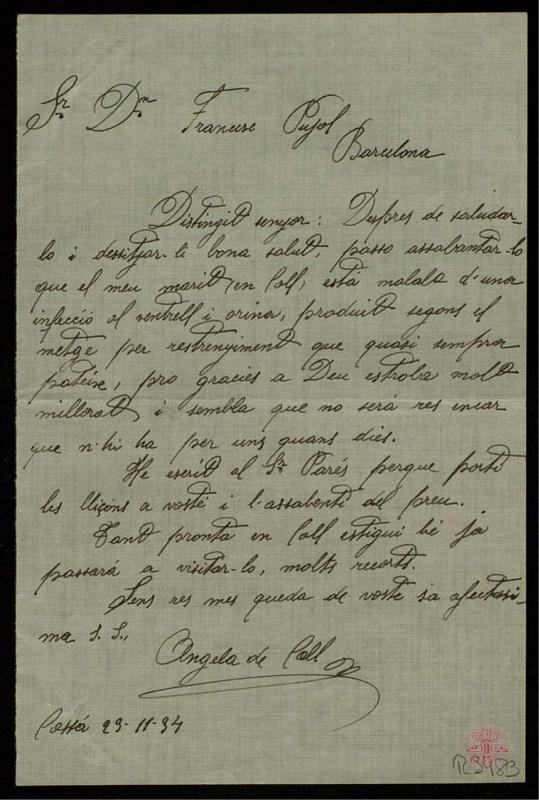 Sr. Dn. Francesc Pujol
Barcelona
Distingit senyor: Despres de saludar-
lo i dessitjar-li bona salut, passo assabantar-lo
que el meu marit, en Coll, está malalt d'una
infecció al ventrell i orina, produit segons el
metge per restrenyiment que quasi sempra
pateix, pro gracies a Deu estroba molt
millorat i sembla que no será res encar
que n-hi ha per uns quans dies.
He escrit al Sr. Parés perque porti
les lliçons a vosté i l'assabenti del preu.
Tant pronta en Coll estigui bé ja
passará a visitar-lo, molts recorts.
Sens res mes queda de vosté sa afectissi-
ma S. S.,
Angela de Coll
Cassá 29-11-34
R 3483